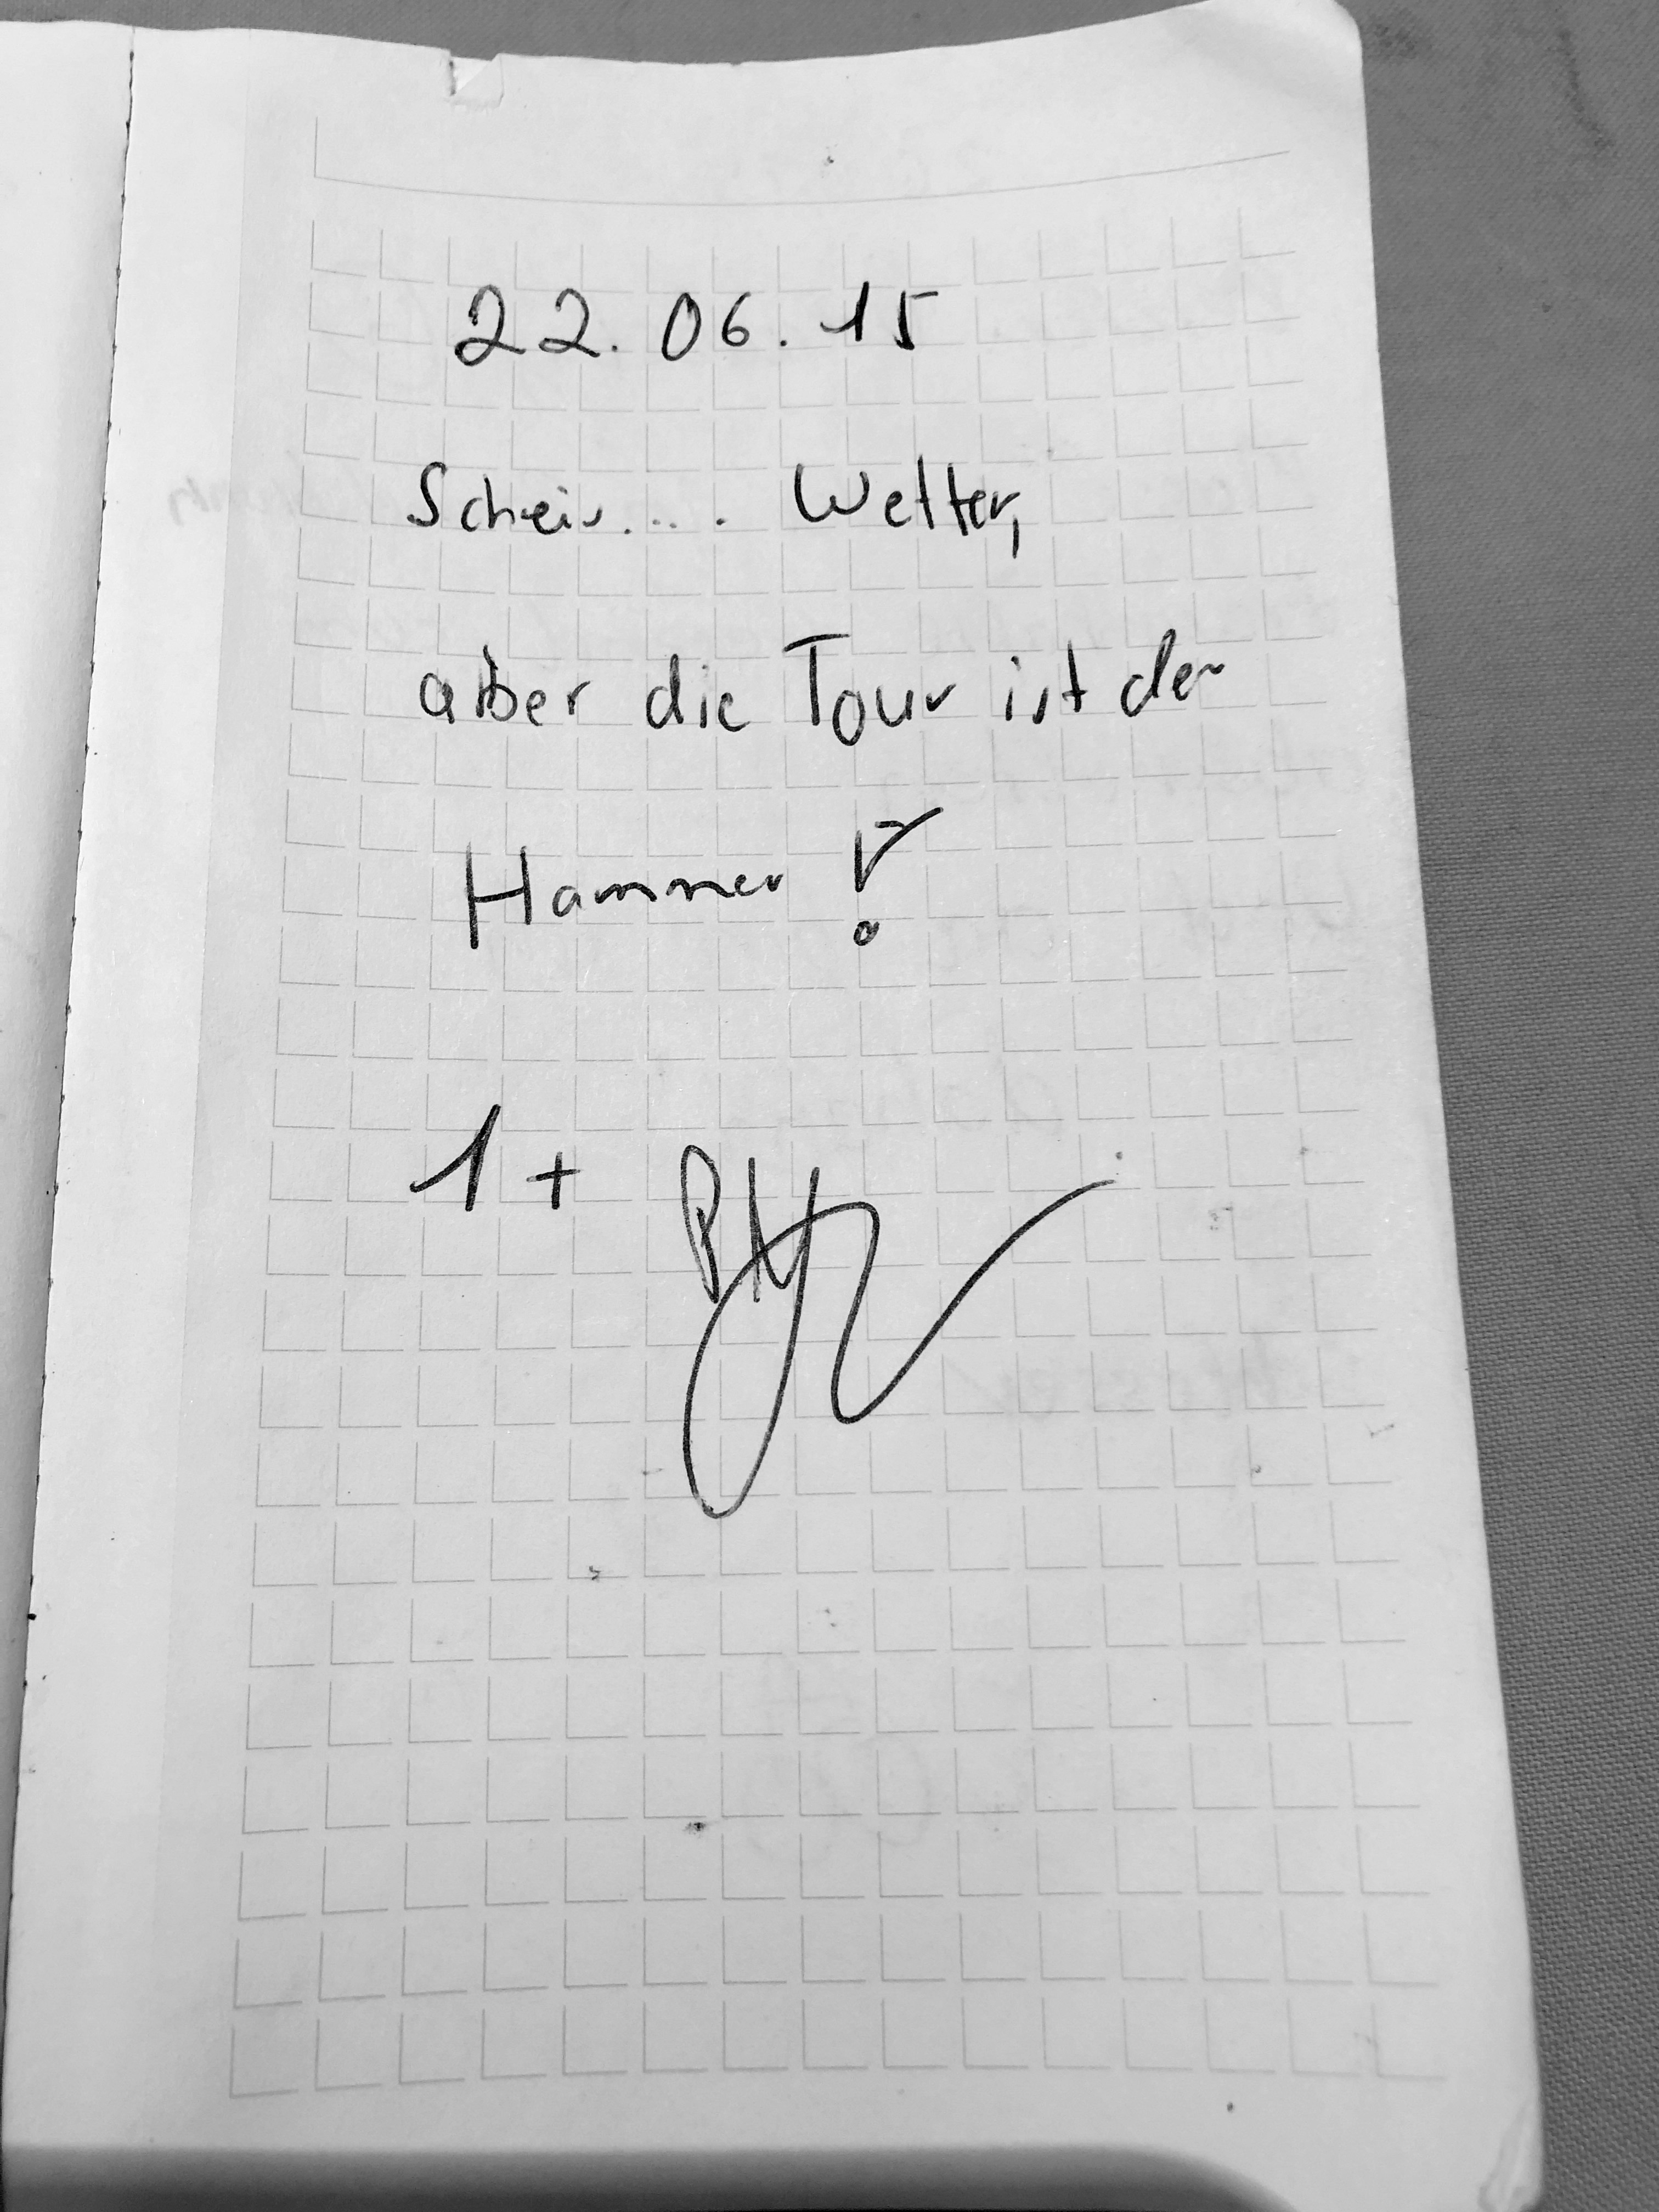 22.06.15
Scheis.... Wetter,
aber die Tour ist der
Hammer!
1+